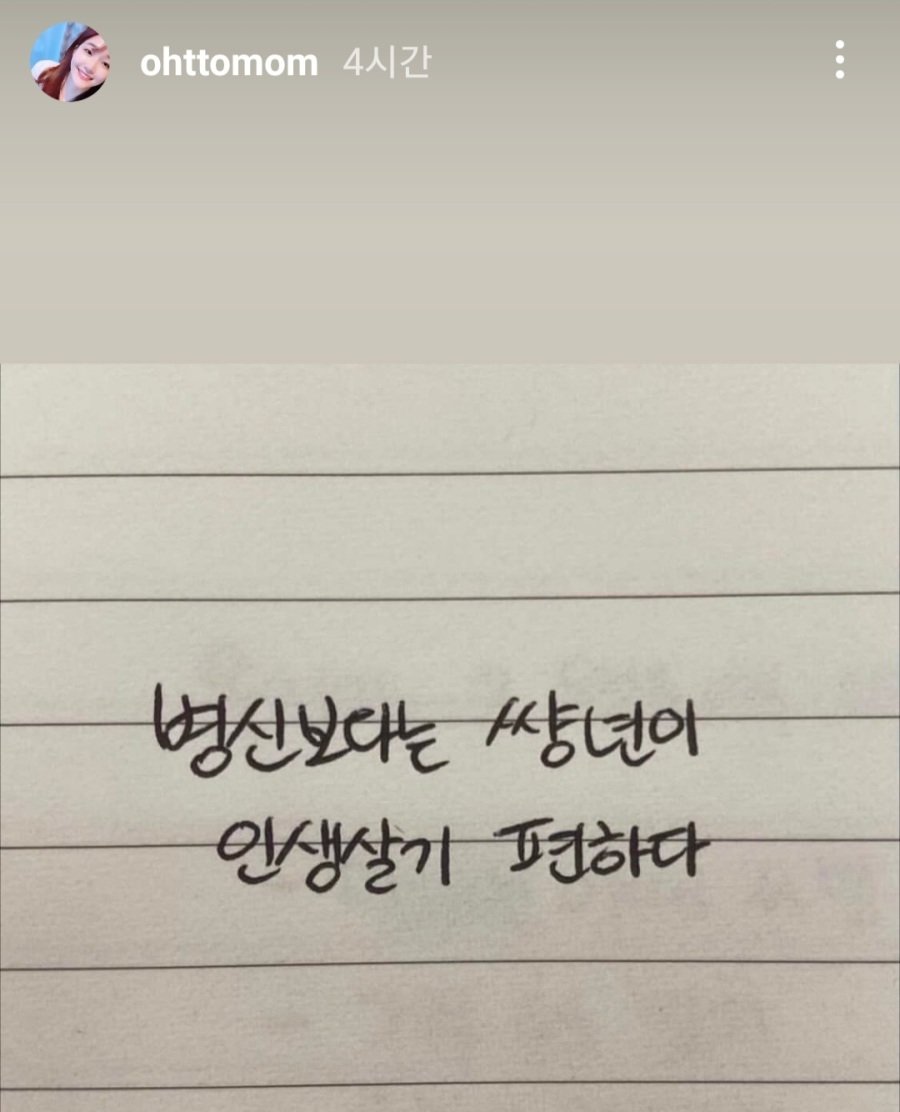 ohttomom 4시간
병신보다는 쌍년이
인생살기 편하다